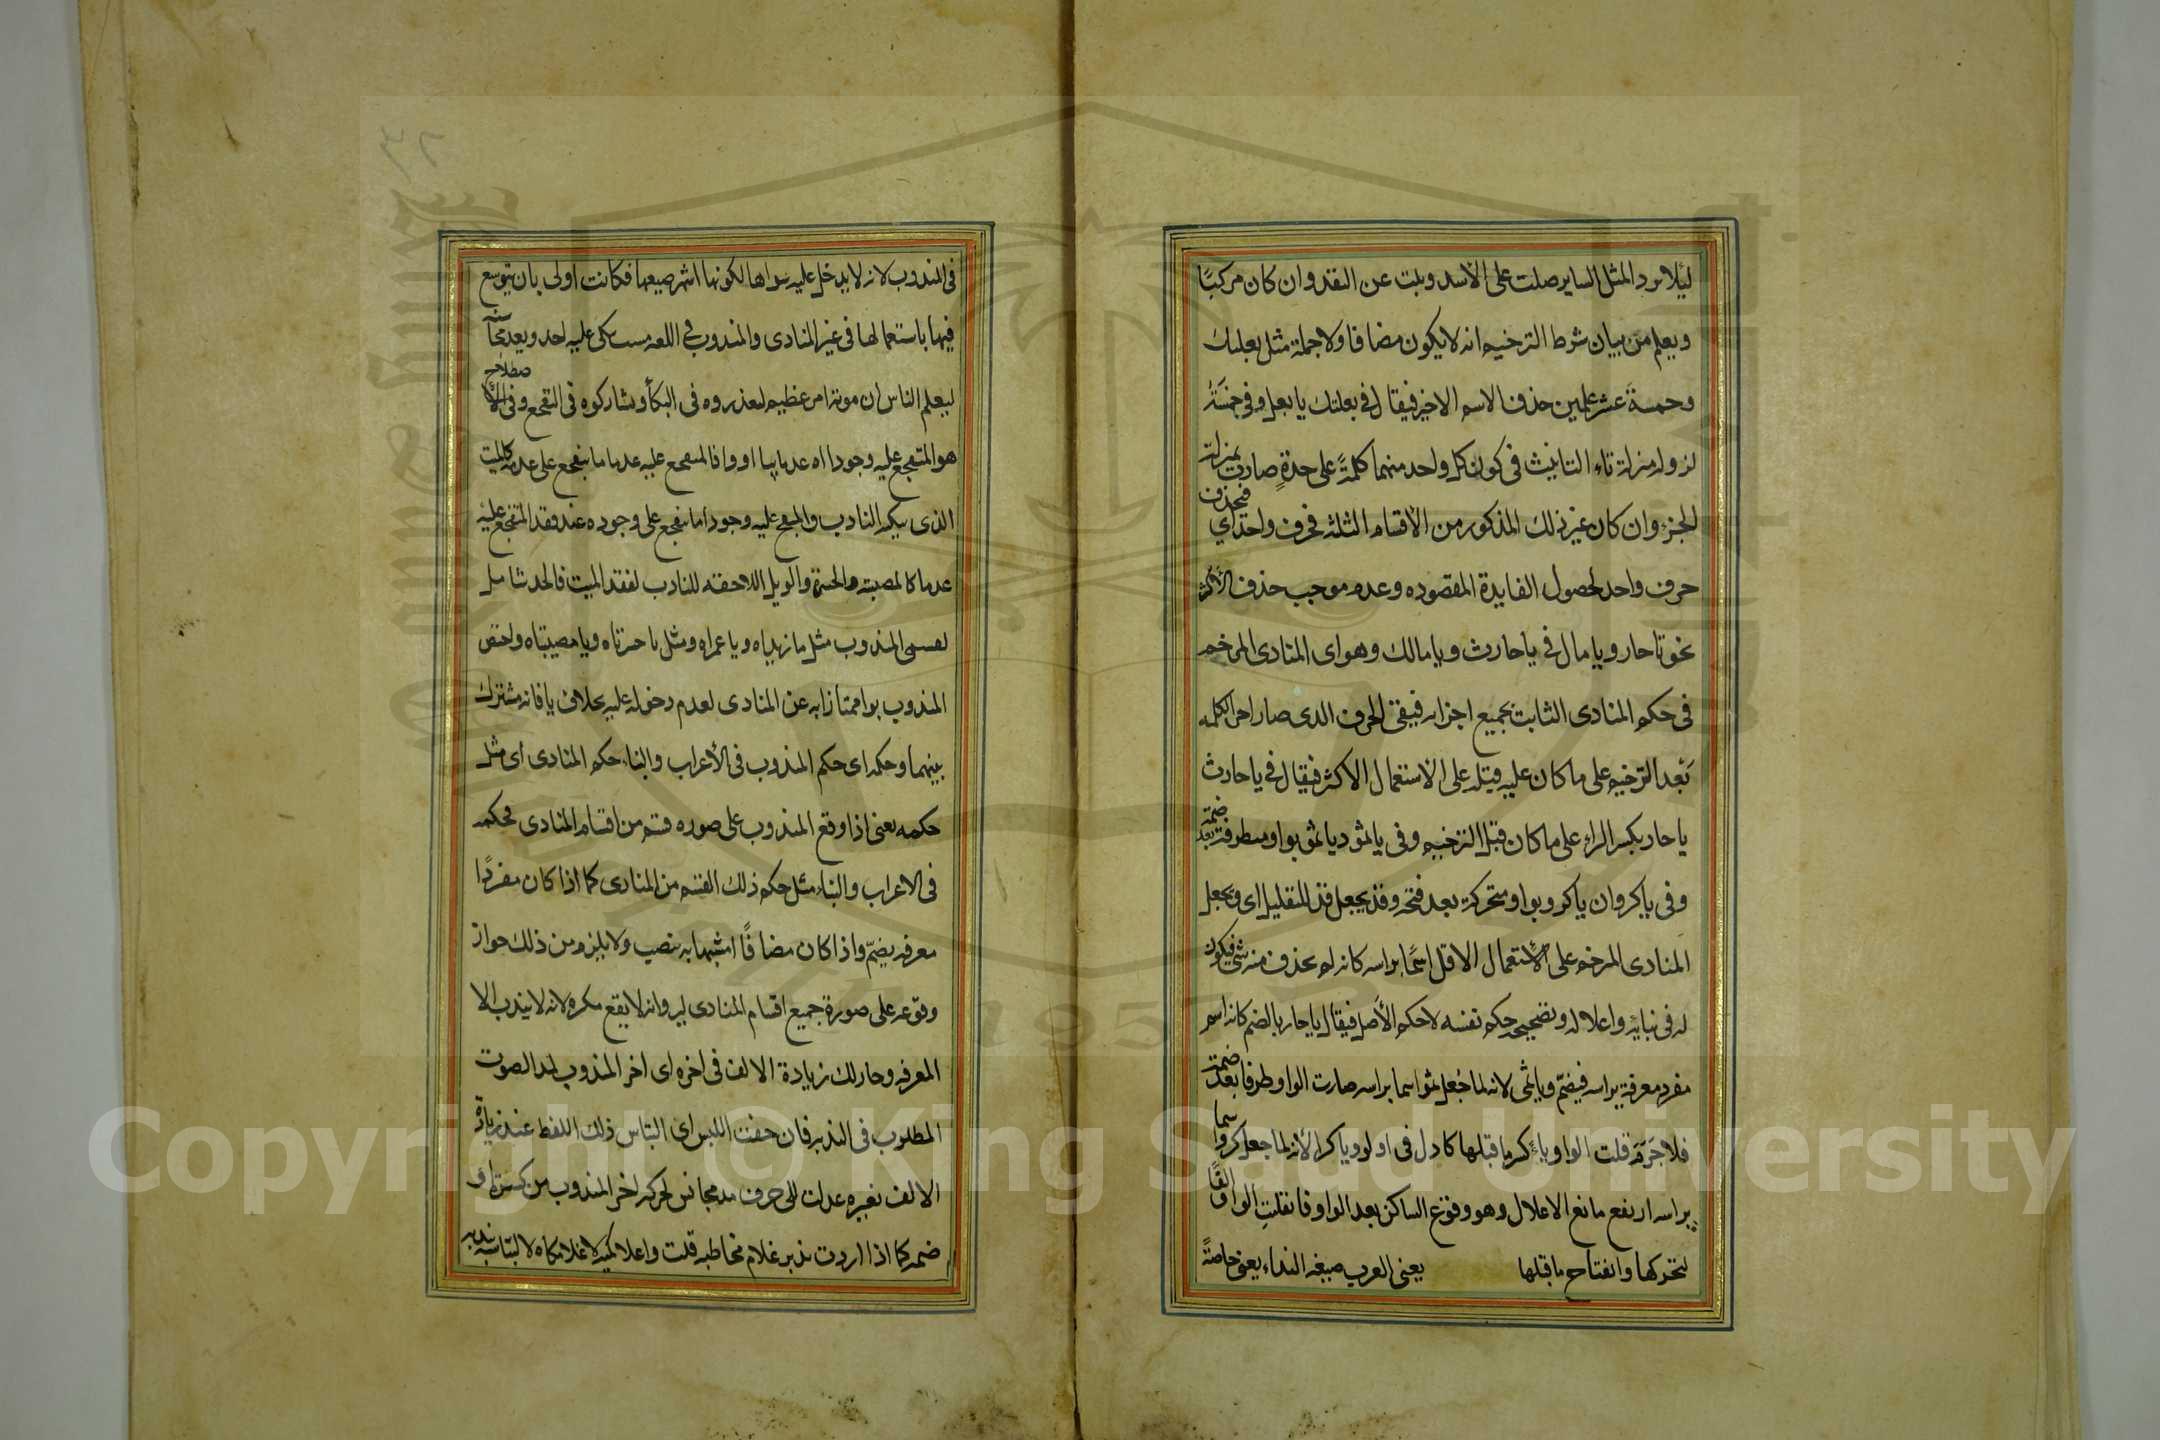 ليلا يرد المثل الساير صلت على الاسد وبلت عن النقد وان كان مركبا
ويعلم من بيان شرط الترخيم انه لا يكون مضافا ولا جملة مثل بعلبك
وخمسة عشر علمين حذف الاسم الاخير فيقال في بعلبك يا بعل وفي خمسة
لنزوله منزلة تاء التانيث في كون كل واحد منهما كلمة على حدة صارت بمنزلة
الجزء وان كان غير ذلك المذكور من الاقسام الثلثه فحرف واحد اي فيحذف
حرف واحد لحصول الفايدة المقصوده وعدم موجب حذف الاكثر
نحو يا حار ويا مال في يا حارث ويا مالك وهو اى المنادى المرخم
في حكم المنادى الثابت بجميع اجزايه فيبقى الحرف الذى صار اخر الكلمه
بعد الترخيم على ما كان عليه قبله على الاستعمال الاكثر فيقال في يا حارث
يا حار بكسر الراء على ما كان قبل الترخيم وفى يا ثمود يا ثمو بواو متطرفة بعد ضمة
وفى يا كروان يا كرو بواو متحركة بعد فتحة وقد يجعل قد للتقليل اى ويجعل
المنادى المرخم على الاستعمال الاقل اسما براسه كانه لم يحذف منه شئ فيكون
له فى بنايه واعلاله وتصحيحه حكم نفسه لا حكم الاصل فيقال يا حار بالضم كانه اسم
مفرد معرفة براسه فيضم ويا ثمى لانه لما جعل ثمو اسما براسه صارت الواو طرفا بعد ضمة
فلا جرم قلبت الواو ياء وكسر ما قبلها كما دل فى ادلو ويا كرا لانه لما جعل كرو اسما
براسه ارتفع مانع الاعلال وهو وقوع الساكن بعد الواو فانقلبت الواو الفا
لتحركها وانفتاح ما قبلها يعنى العرب صيغه النداء يعنى خاصة
في المندوب لانه لا يدخل عليه سواها لكونها اشهر صيغها فكانت اولى بان يتوسع
فيها باستعمالها فى غير المنادى والمندوب في اللغه ميت يبكى عليه احد ويعد محاسنه
ليعلم الناس ان موته امر عظيم ليعذروه فى البكاء ويشاركوه فى التفجع وفى الاصطلاح
هو المتفجع عليه وجودا او عدما بيا او وا فالمتفجع عليه عدما ما يتفجع على عدمه كالميت
الذى يبكيه النادب والمتفجع عليه وجودا ما يتفجع على وجوده عند فقد المتفجع عليه
عدما كالمصيبه والحسرة والويل اللاحقه للنادب لفقد الميت فالحد شامل
لقسمى المندوب مثل يا زيداه ويا عمراه ومثل يا حسرتاه ويا مصيبتاه واختص
المندوب بوا ممتازا به عن المنادى لعدم دخوله عليه بخلاف يا فانه مشترك
بينهما وحكمه اى حكم المندوب فى الاعراب والبناء حكم المنادى اى مثل
حكمه يعنى اذا وقع المندوب على صوره قسم من اقسام المنادى فحكمه
فى الاعراب والبناء مثل حكم ذلك القسم من المنادى كما اذا كان مفردا
معرفه يضم واذا كان مضافا او مشبها به ينصب ولا يلزم من ذلك جواز
وقوعه على صورة جميع اقسام المنادى ليرد انه لا يقع نكره لانه لا يندب الا
المعرفه وجاز لك زيادة الالف فى اخره اى اخر المندوب لمد الصوت
المطلوب فى الندبه فان خفت اللبس اى التباس ذلك اللفظ عند زيادة
الالف بغيره عدلت الى حرف مد مجانس لحركه اخر المندوب من كسرة او
ضمه كما اذا اردت ندبه غلام مخاطبه قلت واغلامكيه لا غلامكاه لالتباسه بندبه
Copyright © King Saud University
1957